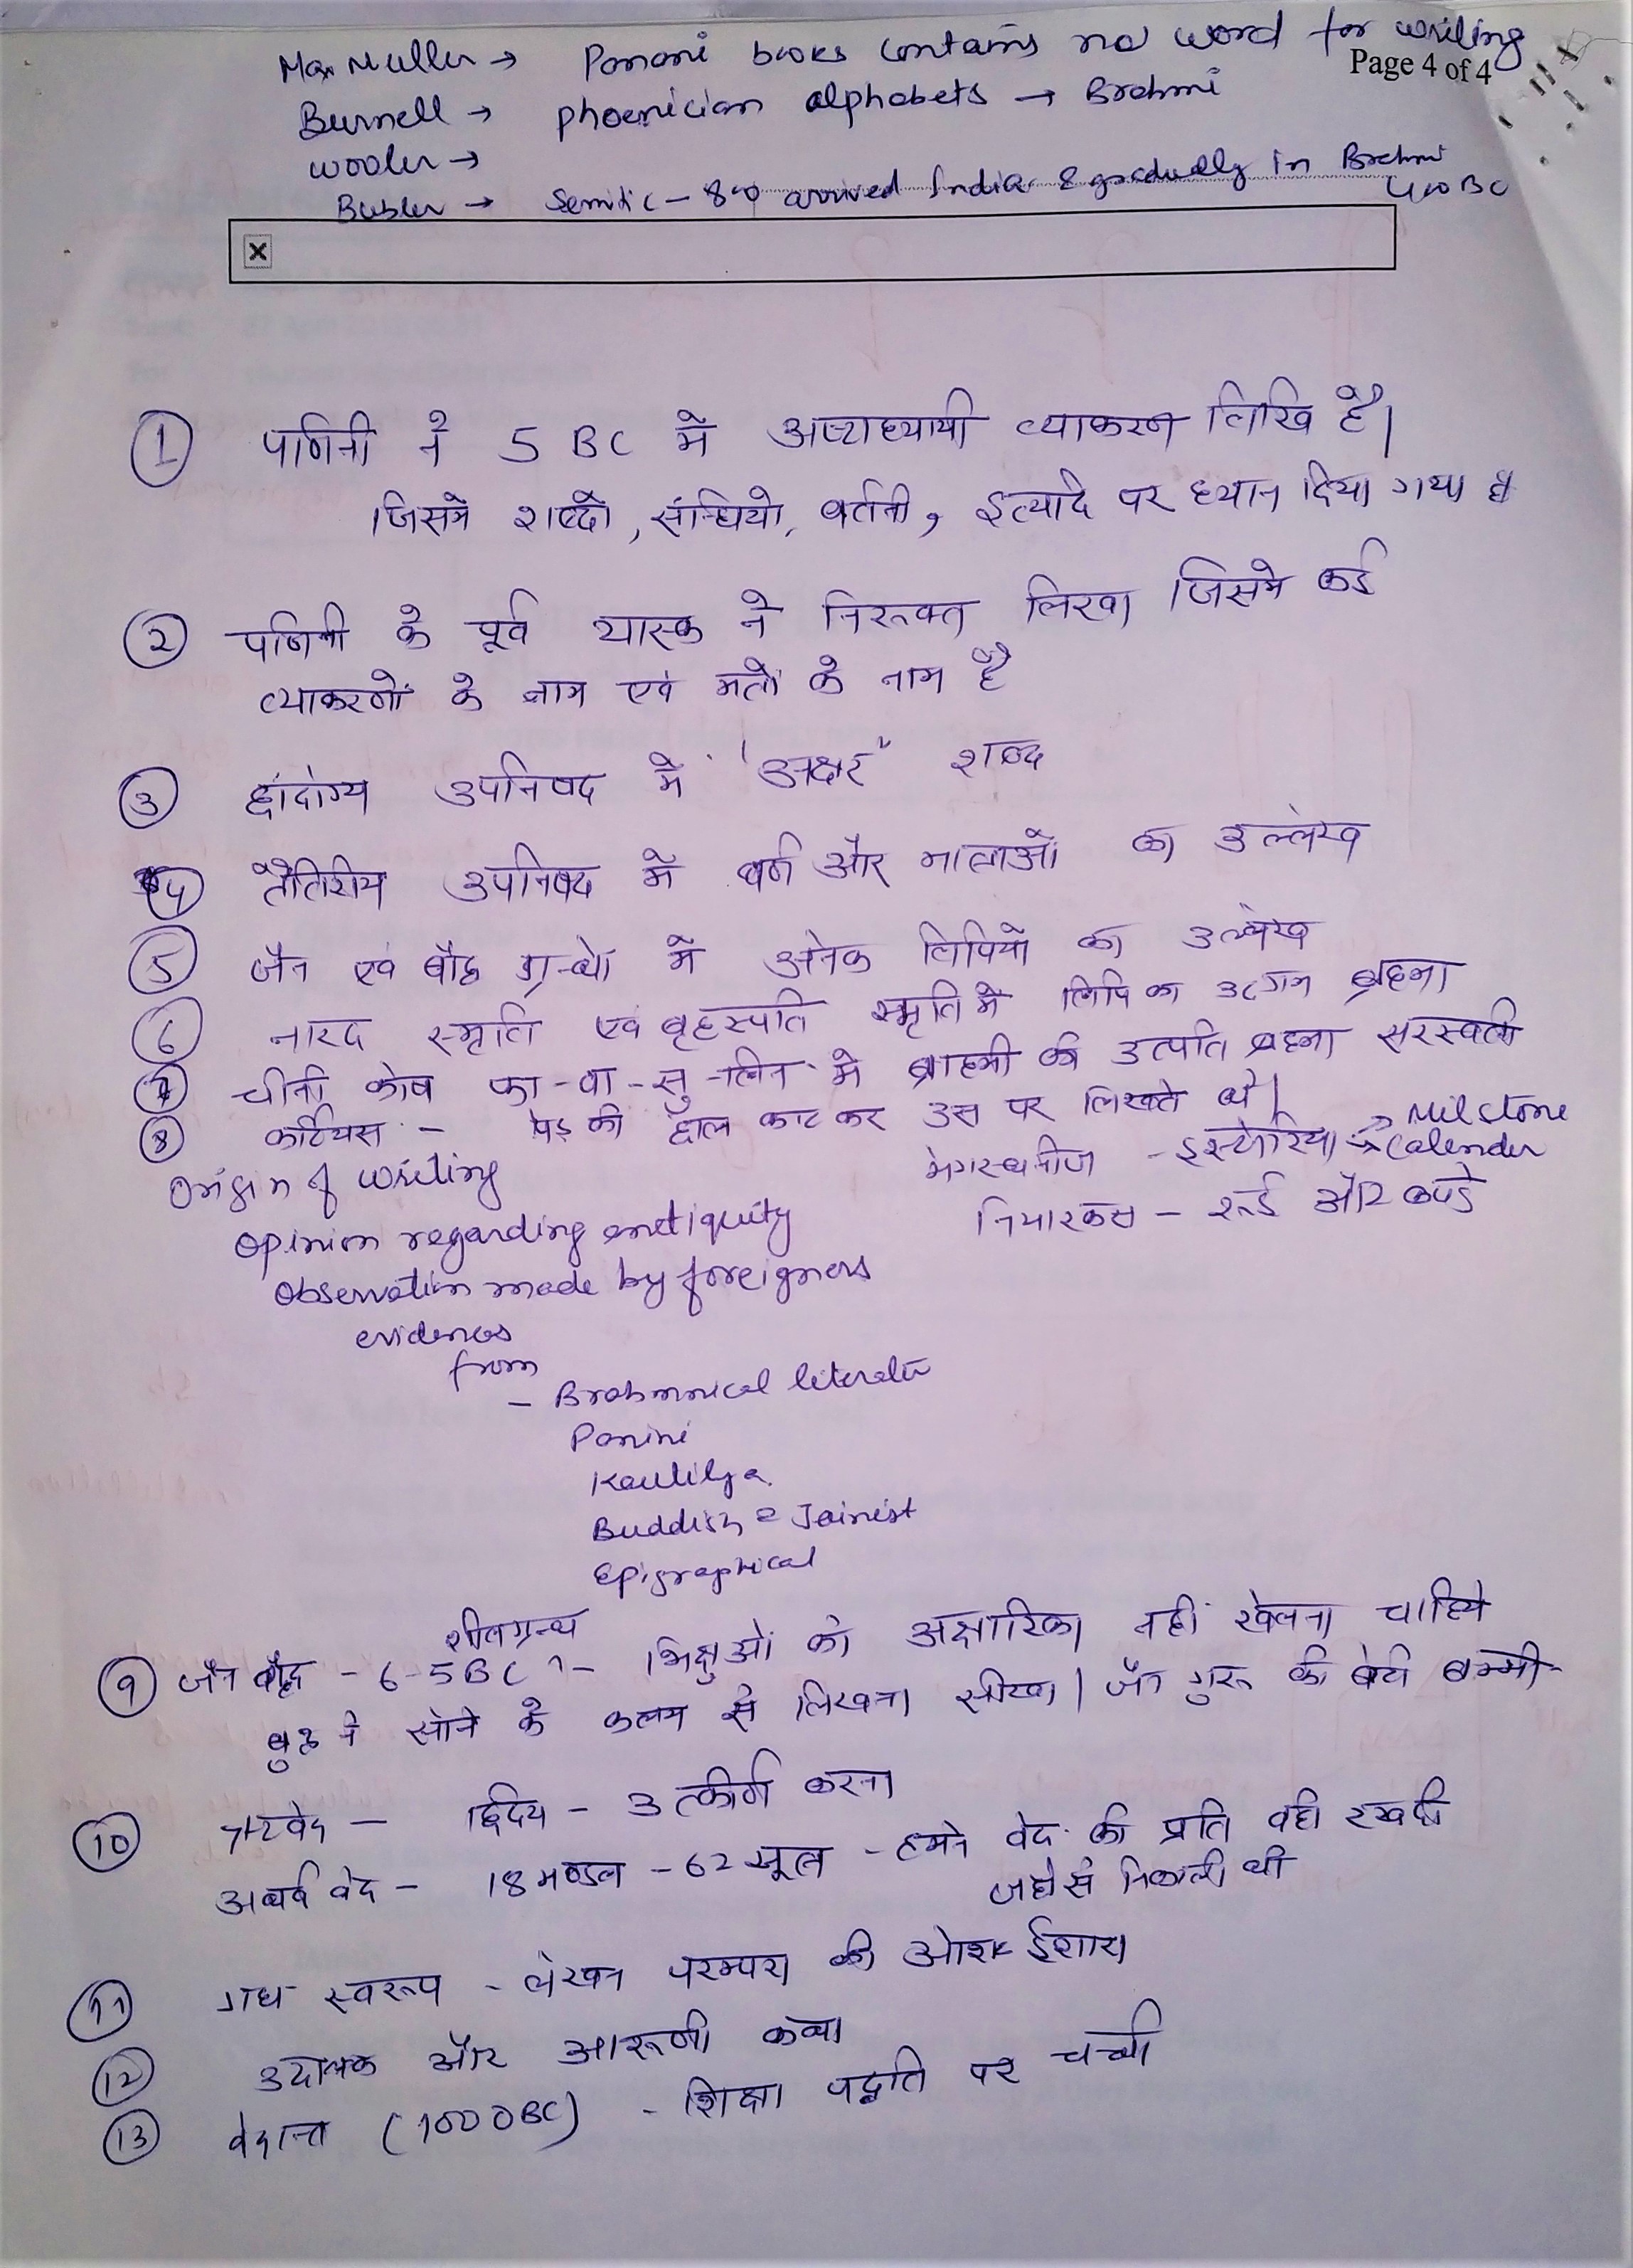 Max Muller → Panani books contains no word for writing
Page 4 of 4
Burnell → phoenician alphabets → Brahmi
wooler →
Bubler → Semitic - 800 arrived India & gradually in Brehmi
400 BC
① पाणिनी ने 5 BC में अष्टाध्यायी व्याकरण लिखि है।
जिसमे शब्दो, संन्धियो, वर्तनी, इत्यादि पर ध्यान दिया गया है
② पाणिनी के पूर्व यास्क ने निरूक्त लिखा जिसमे कई
व्याकरणों के नाम एवं मतों के नाम है
③ छांदोग्य उपनिषद में 'अक्षर' शब्द
④ तैतिरीय उपनिषद में वर्ण और मात्राओं का उल्लेख
⑤ जैन एवं बौद्ध ग्रन्थों में अनेक लिपियों का उल्लेख
⑥ नारद स्मृति एवं बृहस्पति स्मृति में लिपि का उदगम ब्रहमा
⑦ चीनी कोष फा-वा-सु-लिन में ब्राहमी की उत्पति ब्रहमा सरस्वती
⑧ कर्टियस :- पेड़ की छाल काट कर उस पर लिखते थे।
मेगस्थनीज - इस्टेरिया → Milstone
→ Calender
नियारकस - रूई और कपडे
Origin of writing
Opinion regarding antiquity
Observation made by foreigners
evidences
from
- Brahmnical literatu
Panini
Kautilya
Buddish & Jainist
Epigraphical
शीलग्रन्थ
⑨ जैन बौद्ध - 6-5BC - भिक्षुओं को अक्षारिका नहीं खेलना चाहिये
बुद्ध ने सोने के कलम से लिखना सीखा। जैन गुरू की बेटी बम्मी
⑩ ऋग्वेद - - उत्कीर्ण करना
अथर्व वेद - 18 मण्डल - 62 सूत्त - हमने वेद की प्रति वही रखदी
जहाँ से निकाली थी
⑪ गध स्वरूप - लेखन परम्परा की ओर ईशारा
⑫ उदालक और आरूणी कथा
⑬ वेदान्त (1000BC) - शिक्षा पद्धति पर चर्चा